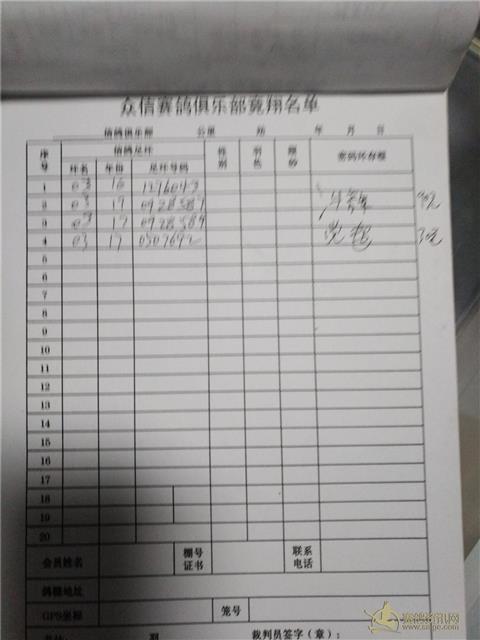 众信赛鸽俱乐部竞翔名单
信鸽俱乐部 公里 站 年 月 日
序号 信鸽足环 性别 羽色 眼砂 密码环存根
环名 年份 足环号码
1 03 16 1276043
2 03 17 0928587
3 03 17 0928589
4 03 17 0507692
5
6
7
8
9
10
11
12
13
14
15
16
17
18
19
20
会员姓名 棚号证书 联系电话
鸽棚地址
GPS坐标 笼号
羽 裁判员签字（章）：
赛鸽资讯网
www.saige.com